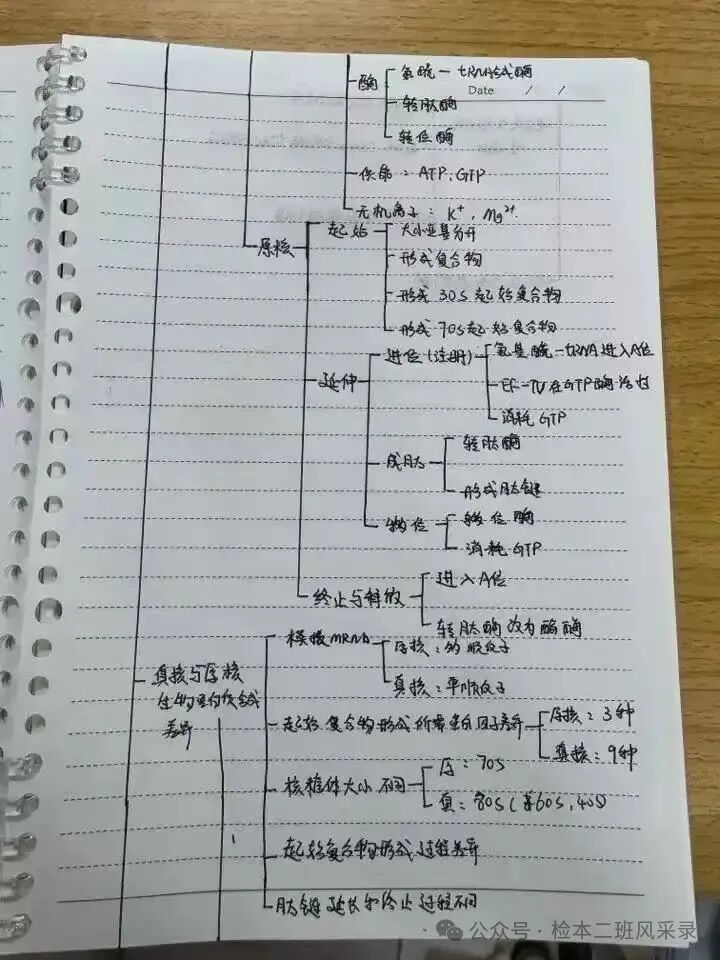 酶
氨酰-tRNA合成酶
Date / /
转肽酶
转位酶
供能：ATP、GTP
无机离子：K⁺，Mg²⁺
原核
起始
大小亚基分开
形成复合物
形成 30S 起始复合物
形成 70S 起始复合物
延伸
进位(注册)
氨基酰-tRNA进入A位
EF-TU在GTP酶活性
消耗 GTP
成肽
转肽酶
形成肽键
移位
移位酶
消耗 GTP
终止与释放
进入A位
转肽酶改为酯酶
真核与原核
生物蛋白质合成
差异
模板mRNA
原核：多顺反子
真核：单顺反子
起始复合物形成所需蛋白因子差异
原核：3种
真核：9种
核糖体大小不同
原：70S
真：80S(含60S,40S)
起始复合物形成过程差异
肽链延长和终止过程不同
公众号·检本二班风采录